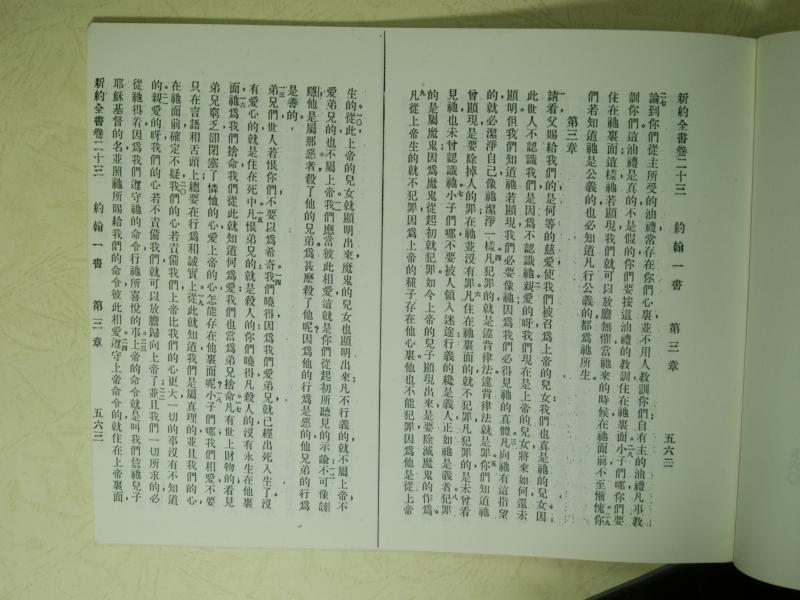 新約全書卷二十三 約翰一書 第三章 五六二
論到你們從主所受的油禮當存在你們心裏並不用人教訓你們自有主的油禮凡事教
訓你們這油禮是真的不是假的你們要按這油禮的教訓住在祂裏面小子們哪你們要
住在祂裏面這樣祂若顯現我們就可以放膽無懼當祂來的時候在祂面前不至慚愧你
們若知道祂是公義的也必知道凡行公義的都爲祂所生
第三章
請看父賜給我們的是何等的慈愛使我們被召爲上帝的兒女我們也真是祂的兒女因
此世人不認識我們是因爲不認識祂親愛的呀我們現在是上帝的兒女將來如何還未
顯明但我們知道祂若顯現我們必要像祂因爲我們必得見祂的真體凡向祂有這指望
的就必潔淨自己像祂潔淨一樣凡犯罪的就是違背律法違背律法就是罪你們知道祂
曾顯現是要除掉人的罪在祂並沒有罪凡住在祂裏面的就不犯罪凡犯罪的是未曾看
見祂也未曾認識祂小子們哪不要被人領入迷途行義的纔是義人正如祂是義者犯罪
的是屬魔鬼因爲魔鬼從起初就犯罪如今上帝的兒子顯現出來是要除滅魔鬼的作爲
凡從上帝生的就不犯罪因爲上帝的種子存在他心裏他也不能犯罪因爲他是從上帝
生的從此上帝的兒女就顯明出來魔鬼的兒女也顯明出來凡不行義的就不屬上帝不
愛弟兄的也不屬上帝我們應當彼此相愛這就是你們從起初所聽見的示諭不可像該
隱他是屬那惡者殺了他的兄弟爲甚麽殺了他呢因爲他的行爲是惡的他兄弟的行爲
是善的
弟兄們世人若恨你們不要以爲希奇我們曉得因爲我們愛弟兄就已經出死入生了沒
有愛心的就是住在死中凡恨弟兄的就是殺人的你們曉得凡殺人的沒有永生在他裏
面祂爲我們捨命我們從此就知道何爲愛我們也當爲弟兄捨命凡有世上財物的看見
弟兄窮乏卻閉塞了憐恤的心愛上帝的心怎能存在他裏面呢小子們哪我們相愛不要
只在言語和舌頭上總要在行爲和誠實上從此就知道我們是屬真理的並且我們的心
在祂面前確定不疑我們的心若責備我們上帝比我們的心更大一切的事沒有不知道
的親愛的呀我們的心若不責備我們就可以放膽歸向上帝了並且我們一切所求的必
從祂得着因爲我們遵守祂的命令行祂所喜悅的事上帝的命令就是叫我們信祂兒子
耶穌基督的名並照祂所賜給我們的命令彼此相愛遵守上帝命令的就住在上帝裏面
新約全書卷二十三 約翰一書 第三章 五六三